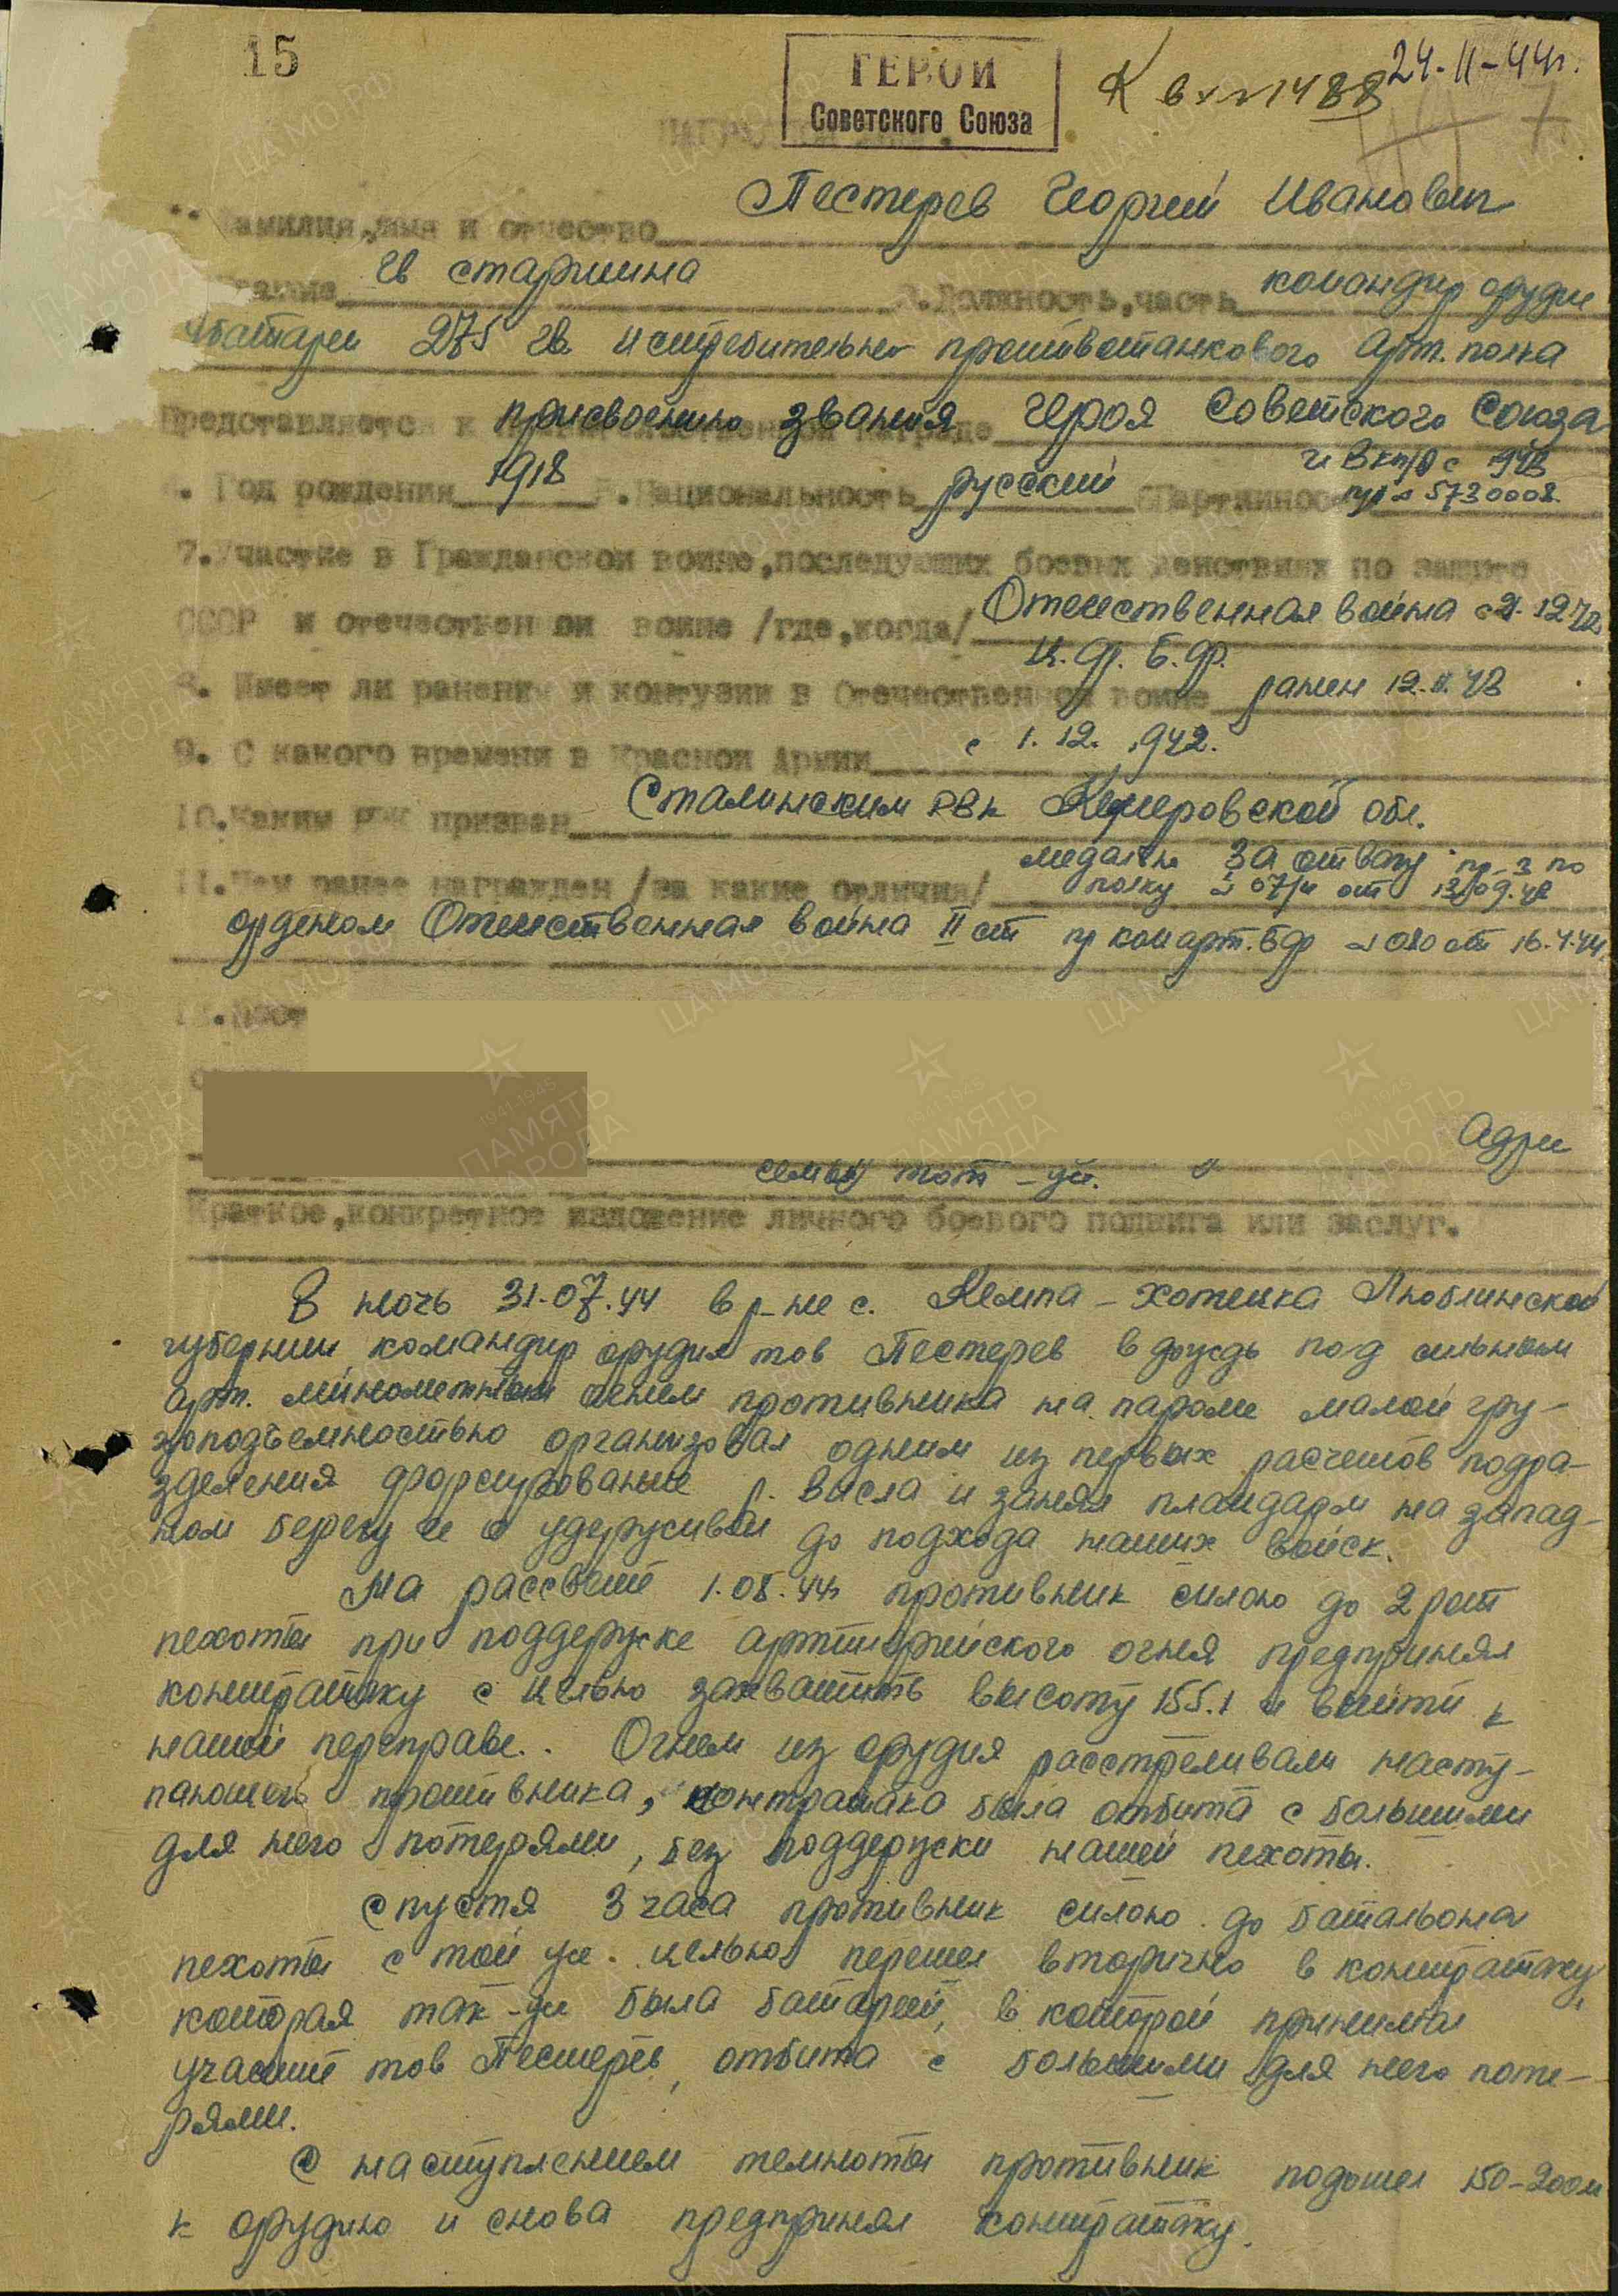 15
ГЕРОЙ
Советского Союза
24-11-44г.
К вх № 1488
НАГРАДНОЙ ЛИСТ.
Фамилия, имя и отчество Пестерев Георгий Иванович
звание гв старшина 3. Должность, часть командир орудия
батареи 275 гв. истребительно противотанкового Арт. полка
Представляется к присвоению звания Героя Советского Союза
правительственной награде
4. Год рождения 1918 5. Национальность русский 6 Партийность чл ВКП/б с 1943
п/б № 5730008
7. Участие в Гражданской войне, последующих боевых действиях по защите
СССР и отечественной войне /где, когда/ Отечественная война с 21.12.42
Ц. фр. Б. фр.
8. Имеет ли ранения и контузии в Отечественной войне ранен 12.11.43
9. С какого времени в Красной Армии с 1. 12. 1942.
10. Каким РВК призван Сталинским РВК Кемеровской обл.
11. Чем ранее награжден /за какие отличия/ медалью За отвагу пр-з по
полку № 07/н от 13.09.43
орденом Отечественная война II ст пр ком арт. Бр № 020 от 16.4.44.
12. Пост
Адрес
семьи тот-же.
Краткое, конкретное изложение личного боевого подвига или заслуг.
В ночь 31.07.44 в р-не с. Кемпа-Хотецка Люблинской
губернии командир орудия тов Пестерев в дождь под сильным
арт. минометным огнем противника на пароме малой гру-
зоподъемностью организовал одним из первых расчетов подра-
зделения форсирование р. Висла и занял плацдарм на запад-
ном берегу и удерживал до подхода наших войск.
На рассвете 1.08.44г противник силою до 2 рот
пехоты при поддержке артиллерийского огня предпринял
контратаку с целью захватить высоту 155.1 и выйти к
нашей переправе.. Огнем из орудия расстреливали насту-
пающего противника, контратака была отбита с большими
для него потерями, без поддержки нашей пехоты.
Спустя 3 часа противник силою до батальона
пехоты с той же целью перешел вторично в контратаку,
которая так-же была батареей, в которой принимал
участие тов Пестерев, отбита с большими для него поте-
рями.
С наступлением темноты противник подошел 150-200м
к орудию и снова предпринял контратаку.